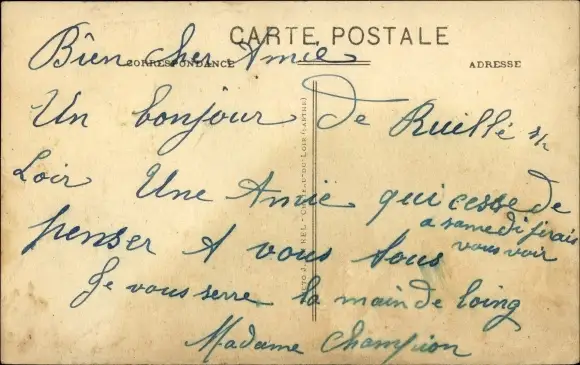 CARTE POSTALE
CORRESPONDANCE
ADRESSE
Bien Cher Amie
Un bonjour de Ruillé s/
Loir Une Amie qui cesse de
penser A vous tous
a samedi jirais
vous voir
Je vous serre la main de loing
Madame Champion
DU-LOIR (SARTHE)